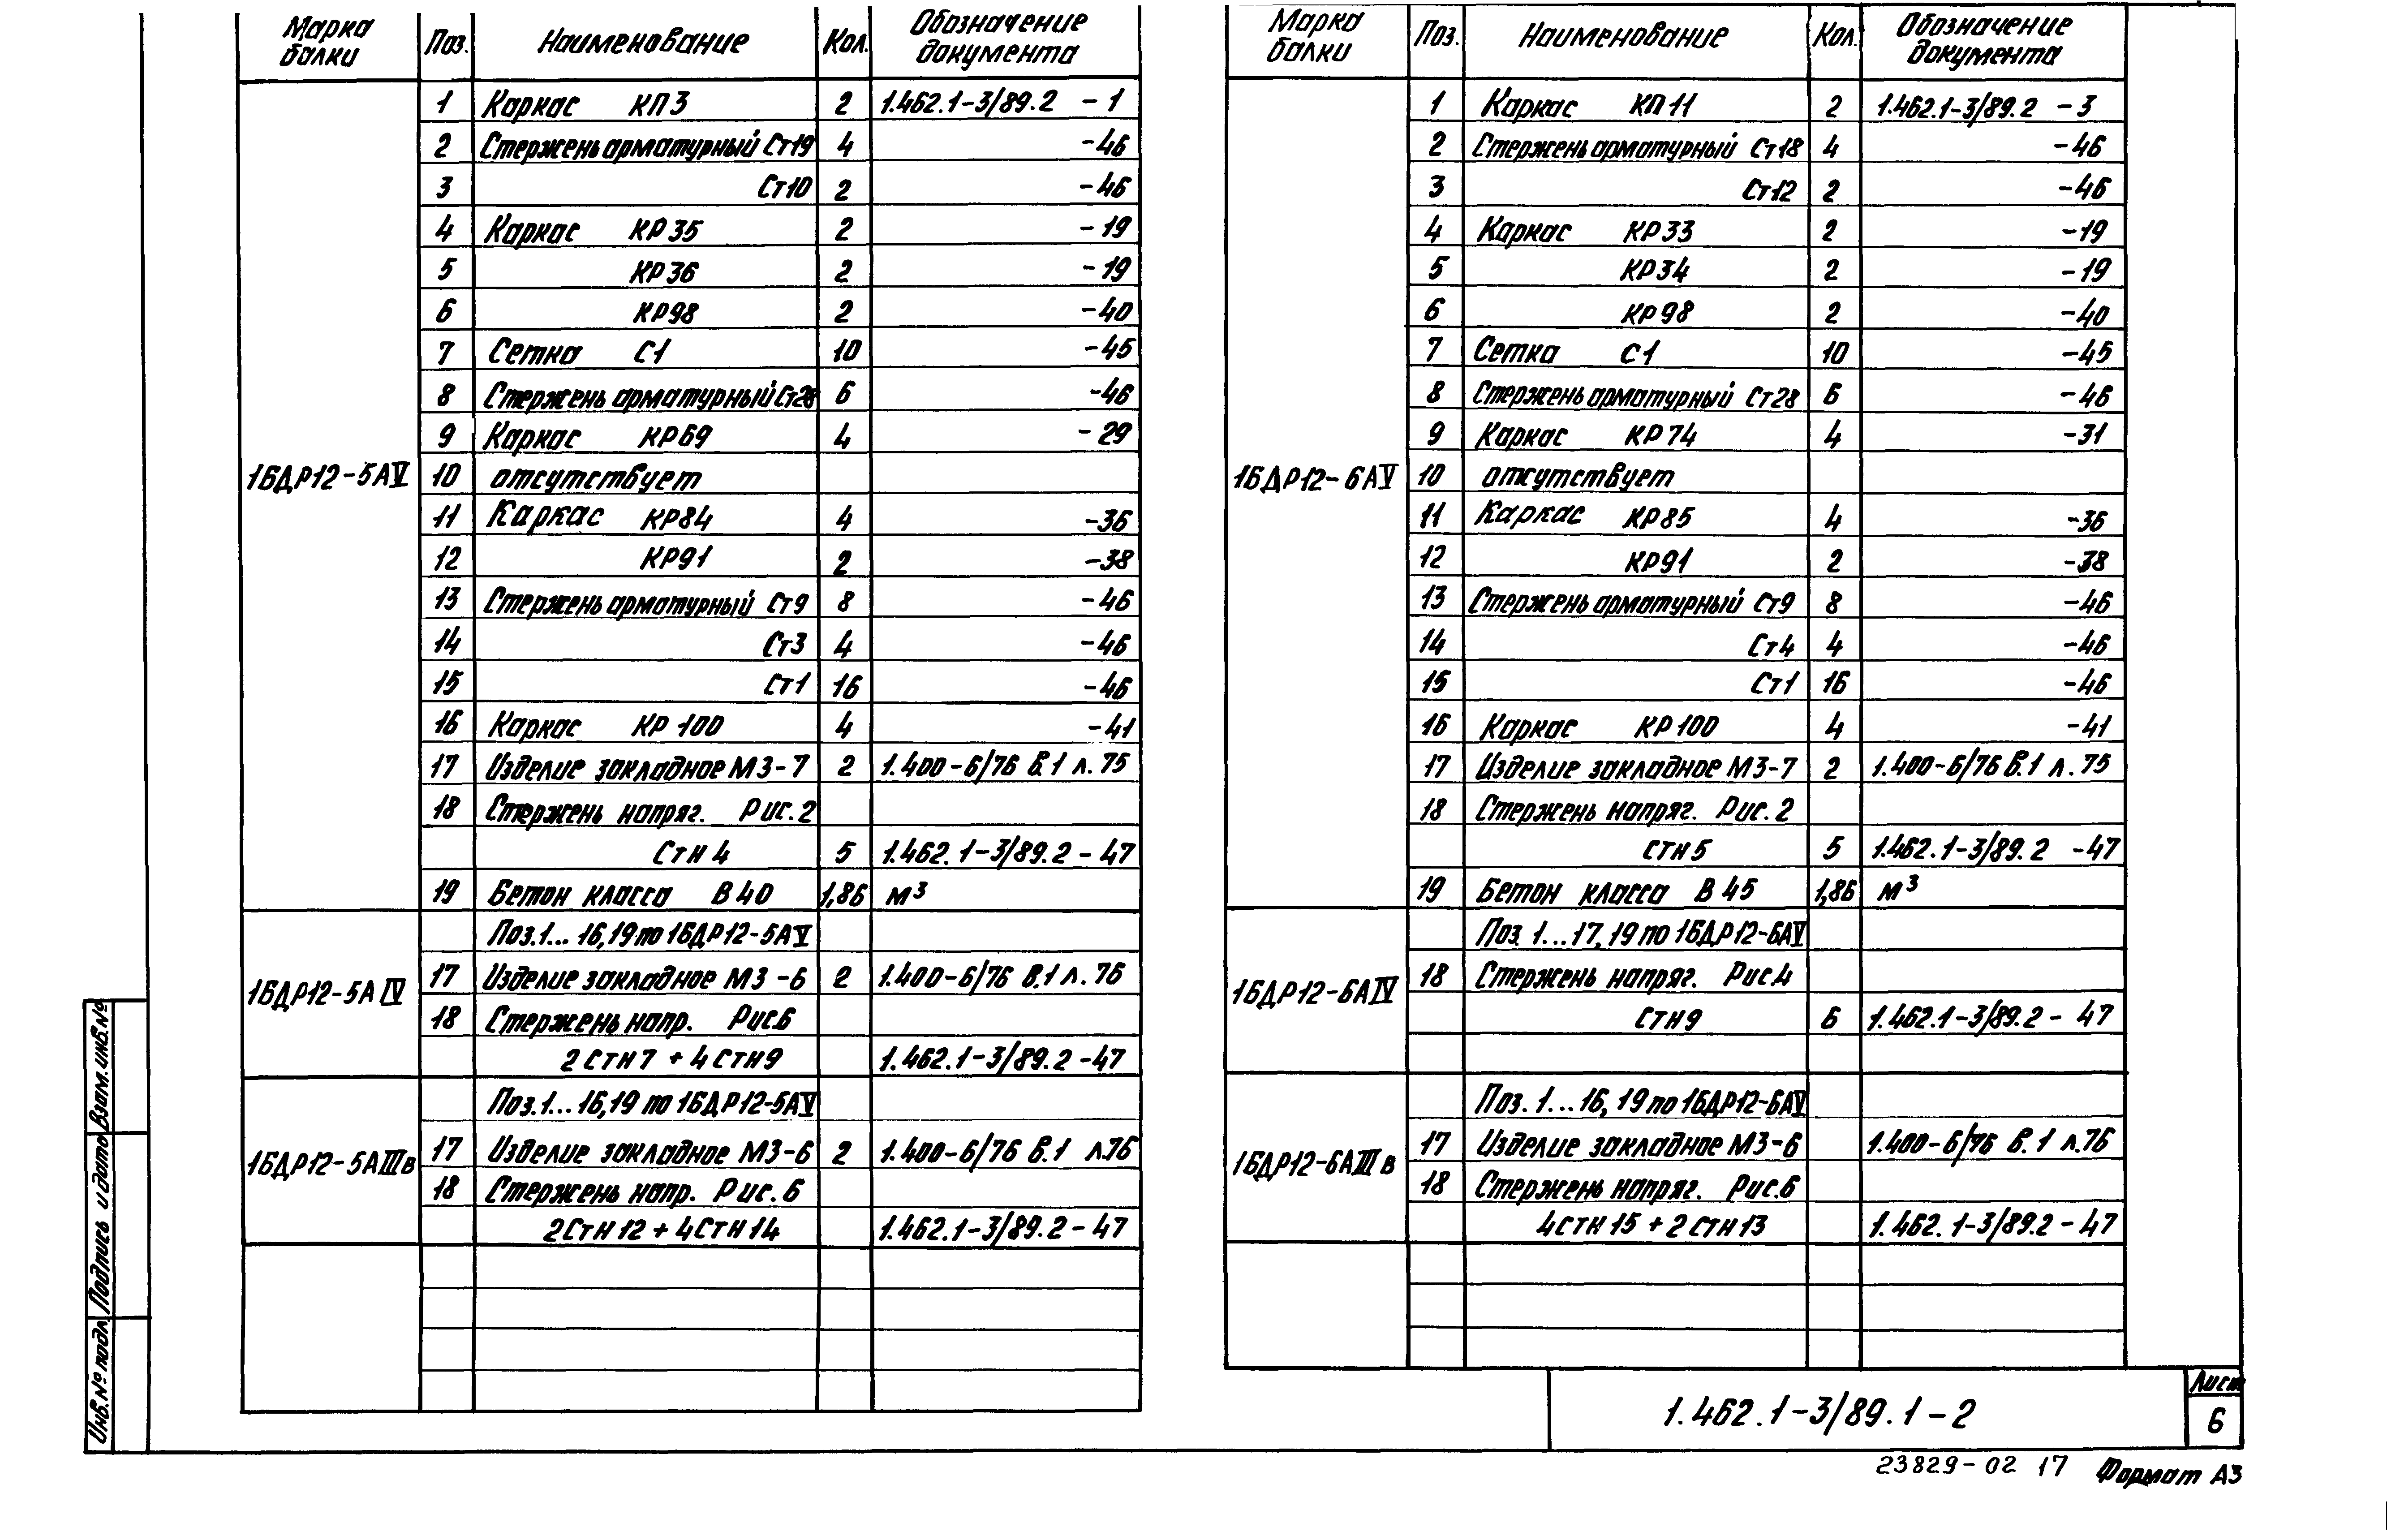 Марка балки Поз. Наименование Кол. Обозначение документа
1БДР12-5АV
1 Каркас КП3 2 1.462.1-3/89.2 -1
2 Стержень арматурный Ст19 4 -46
3 Ст10 2 -46
4 Каркас КР35 2 -19
5 КР36 2 -19
6 КР98 2 -40
7 Сетка С1 10 -45
8 Стержень арматурный Ст28 6 -46
9 Каркас КР69 4 -29
10 отсутствует
11 Каркас КР84 4 -36
12 КР91 2 -38
13 Стержень арматурный Ст9 8 -46
14 Ст3 4 -46
15 Ст1 16 -46
16 Каркас КР100 4 -41
17 Изделие закладное М3-7 2 1.400-6/76 В.1 л.75
18 Стержень напряг. Рис.2
Стн4 5 1.462.1-3/89.2-47
19 Бетон класса В40 1,86 м³
1БДР12-5АIV
Поз.1...16,19 по 1БДР12-5АV
17 Изделие закладное М3-6 2 1.400-6/76 В.1 л.76
18 Стержень напр. Рис.6
2Стн7+4Стн9 1.462.1-3/89.2-47
1БДР12-5АIIIв
Поз.1...16,19 по 1БДР12-5АV
17 Изделие закладное М3-6 2 1.400-6/76 В.1 л.76
18 Стержень напр. Рис.6
2Стн12+4Стн14 1.462.1-3/89.2-47
Марка балки Поз. Наименование Кол. Обозначение документа
1БДР12-6АV
1 Каркас КП11 2 1.462.1-3/89.2 -3
2 Стержень арматурный Ст18 4 -46
3 Ст12 2 -46
4 Каркас КР33 2 -19
5 КР34 2 -19
6 КР98 2 -40
7 Сетка С1 10 -45
8 Стержень арматурный Ст28 6 -46
9 Каркас КР74 4 -31
10 отсутствует
11 Каркас КР85 4 -36
12 КР91 2 -38
13 Стержень арматурный Ст9 8 -46
14 Ст4 4 -46
15 Ст1 16 -46
16 Каркас КР100 4 -41
17 Изделие закладное М3-7 2 1.400-6/76 В.1 л.75
18 Стержень напряг. Рис.2
Стн5 5 1.462.1-3/89.2 -47
19 Бетон класса В45 1,86 м³
1БДР12-6АIV
Поз. 1...17, 19 по 1БДР12-6АV
18 Стержень напряг. Рис.4
Стн9 6 1.462.1-3/89.2-47
1БДР12-6АIIIв
Поз. 1...16, 19 по 1БДР12-6АV
17 Изделие закладное М3-6 1.400-6/76 В.1 л.76
18 Стержень напряг. Рис.6
4Стн15+2Стн13 1.462.1-3/89.2-47
Инв.№ подл. Подпись и дата Взам.инв.№
1.462.1-3/89.1-2
Лист
6
23829-02 17 Формат А3